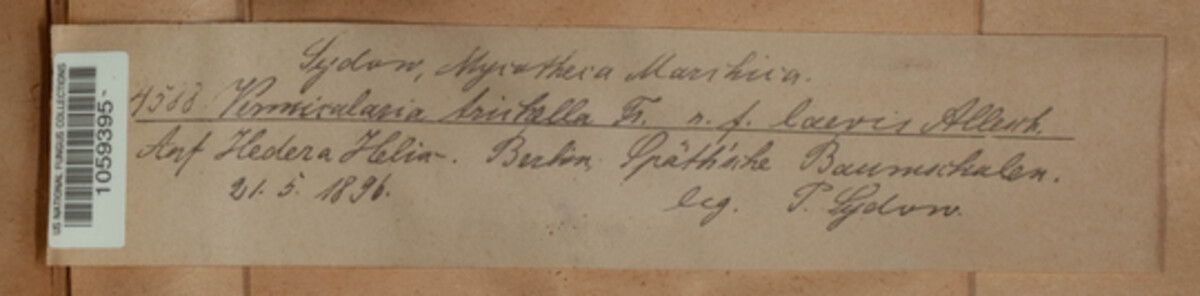 US NATIONAL FUNGUS COLLECTIONS
10593957
Sydow, Mycotheca Marchica.
4588. Vermicularia trichella Fr. n. f. laevis Allesch.
Auf Hedera Helix. Berlin: Späth'sche Baumschulen.
21. 5. 1896. leg. P. Sydow.